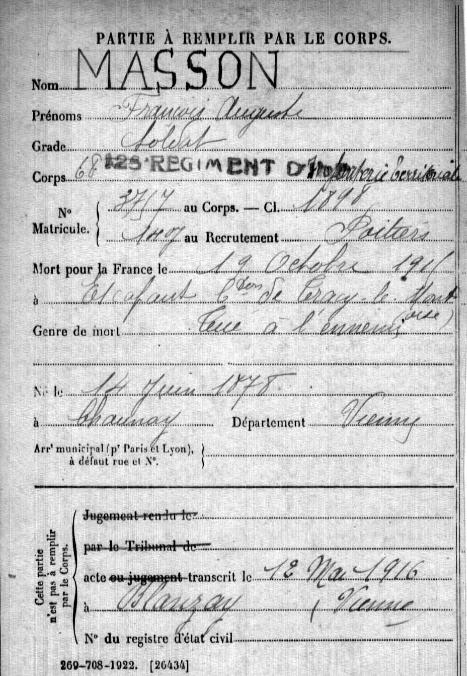 PARTIE À REMPLIR PAR LE CORPS.
Nom MASSON
Prénoms François Auguste
Grade Soldat
Corps 68 125 REGIMENT D'Infanterie territoriale
N° Matricule. { 3717 au Corps. — Cl. 1898
1407 au Recrutement Poitiers
Mort pour la France le 19 Octobre 1915
à de Tracy le Mont
(Oise)
Genre de mort Tué à l'ennemi
Né le 14 Juin 1878
à Chaunay Département Vienne
Arr' municipal (p' Paris et Lyon),
à défaut rue et N°.
Cette partie n'est pas à remplir par le Corps.
Jugement rendu le
par le Tribunal de
acte ou jugement transcrit le 12 Mai 1916
à Blanzay (Vienne
N° du registre d'état civil
269-708-1922. [26434]